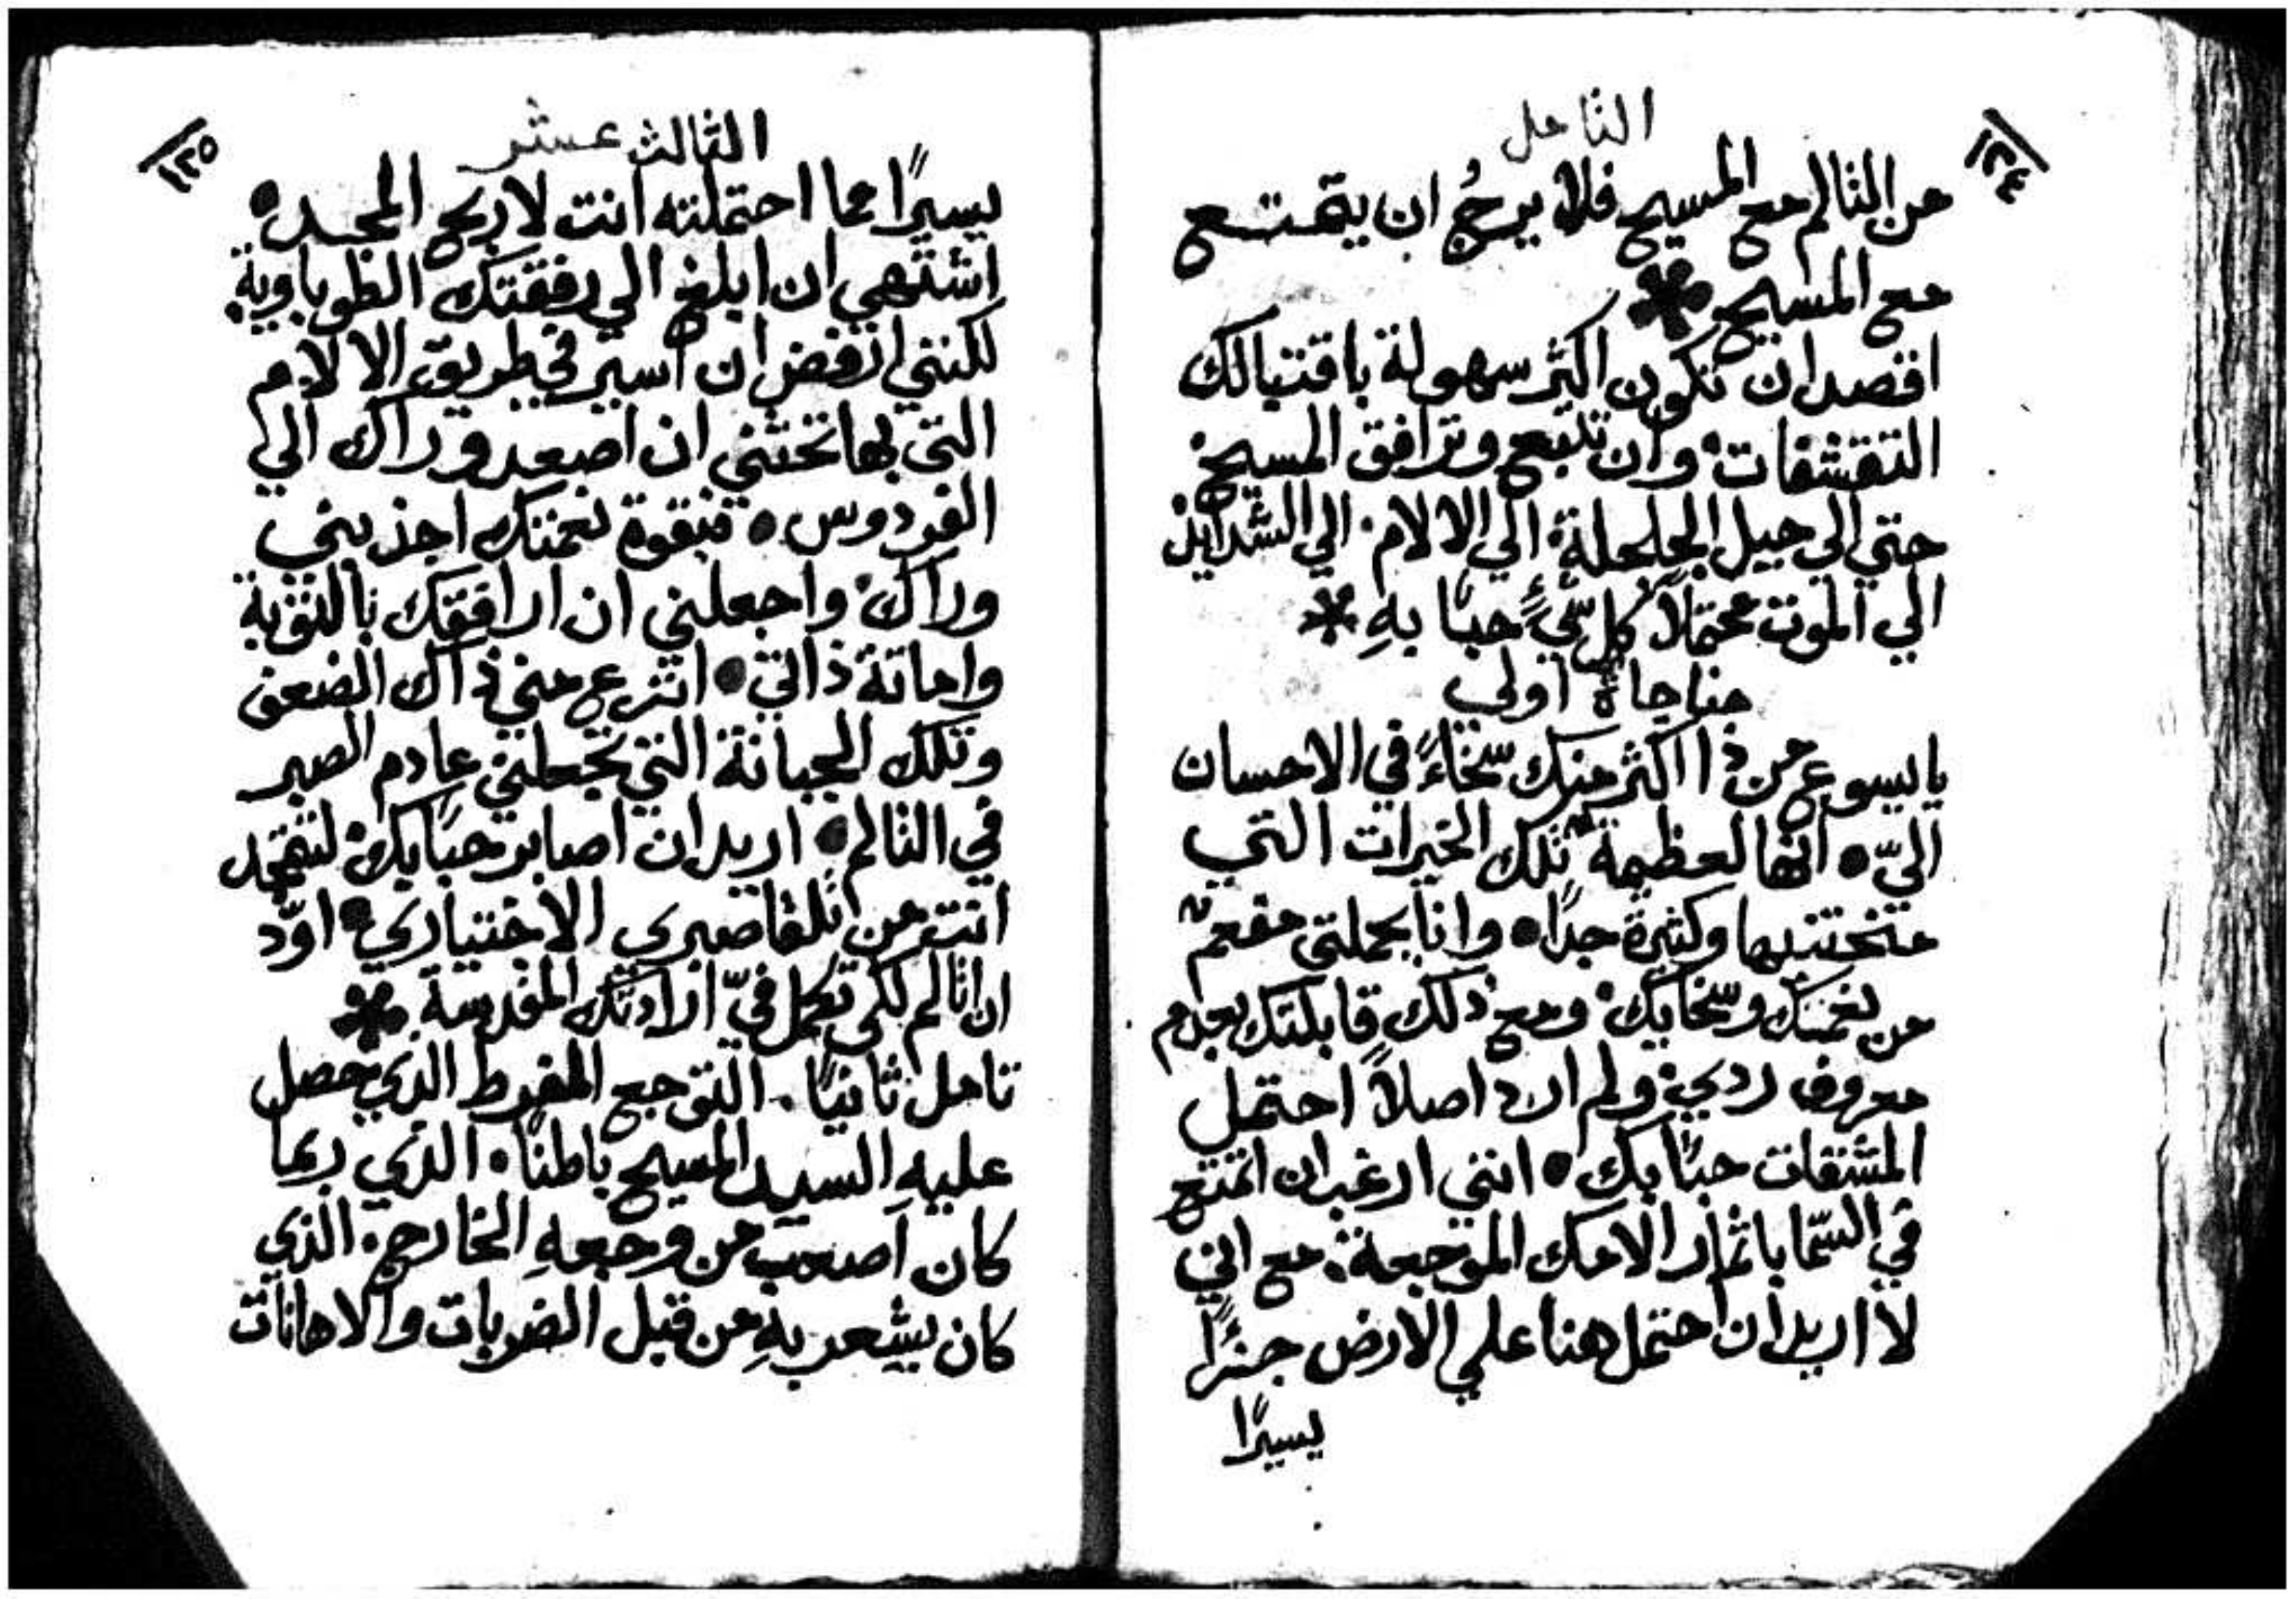 التامل
١٢٤
من التالم مع المسيح فلا يرجُ ان يتمتع
مع المسيح
اقصد ان تكون اكثر سهولة باقتبالك
التقشفات وان تتبع وترافق المسيح
حتي الي جبل الجلجلة الي الالام الي الشدايد
الي الموت محتملاً كل شيءٍ حبًا بهِ
مناجاة اولي
يا يسوع من ذا اكثر منك سخاءً في الاحسان
اليّ انها لعظيمة تلك الخيرات التي
منحتنيها وكثيرة جدًا وانا بجملتي مفعم
من نعمتك وسخايك ومع ذلك قابلتك بعدم
معروف ردي ولم ارد اصلاً احتمل
المشقات حبًا بك انني ارغب ان اتمتع
في السما باثمار الامك الموجعة مع اني
لا اريد ان احتمل هنا علي الارض جزءًا
يسيرًا
الثالث عشر
١٢٥
يسيرًا مما احتملته انت لاربح المجد
اشتهي ان ابلغ الي رفقتك الطوباوية
لكنني ارفض ان اسير في طريق الالام
التي بها تحثني ان اصعد وراك الي
الفردوس فبقوة نعمتك اجذبني
وراك واجعلني ان ارافقك بالتوبة
واماتة ذاتي انزع مني ذاك الضعف
وتلك الجبانة التي تجعلني عادم الصبر
في التالم اريد ان اصابر حبًا بك لتتمجد
انت من تلقا صبري الاختياري اودّ
ان اتالم لكي تكمل فيّ ارادتك المقدسة
تامل ثانيًا التوجع المفرط الذي حصل
عليهِ السيد المسيح باطنًا الذي ربما
كان اصعب من وجعهِ الخارج الذي
كان يشعر بهِ من قبل الضربات والاهانات